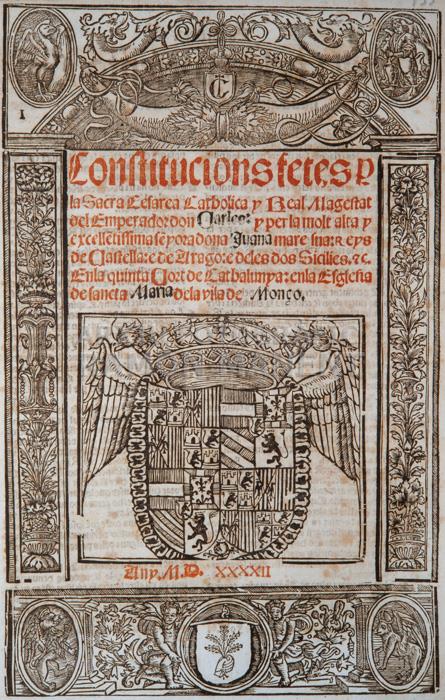 I
Constitucions fetes p
la Sacra Cesarea Catholica y Real Magestat
del Emperador don Carles: y per la molt alta y
excellētissima señora dona Juana mare sua: Reys
de Castella: e de Arago: e de les dos Sicilies. ⁊c.
En la quinta Cort de Cathalunya: en la Esglesia
de sancta Maria de la vila de Monço.
Any. M.D. XXXXII